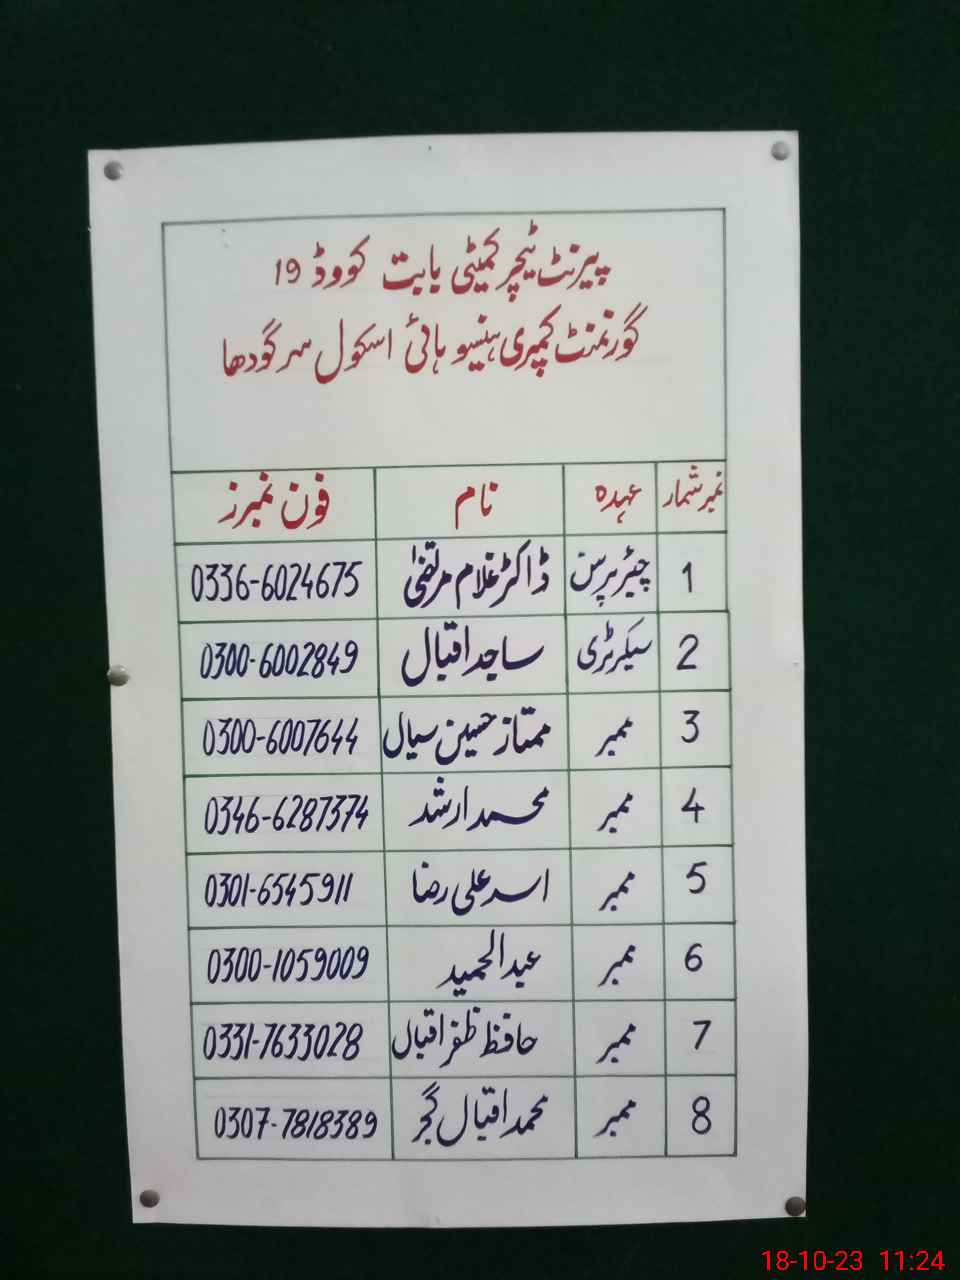 پیرنٹ ٹیچر کمیٹی بابت کووڈ 19
گورنمنٹ کمپری ہنسیو ہائی اسکول سرگودھا
نمبر شمار عہدہ نام فون نمبرز
1 چیئرپرسن ڈاکٹر غلام مرتضیٰ 0336-6024675
2 سیکرٹری ساجد اقبال 0300-6002849
3 ممبر ممتاز حسین سیال 0300-6007644
4 ممبر محمد ارشد 0346-6287374
5 ممبر اسد علی رضا 0301-6545911
6 ممبر عبدالحمید 0300-1059009
7 ممبر حافظ ظفر اقبال 0331-7633028
8 ممبر محمد اقبال گجر 0307-7818389
18-10-23 11:24